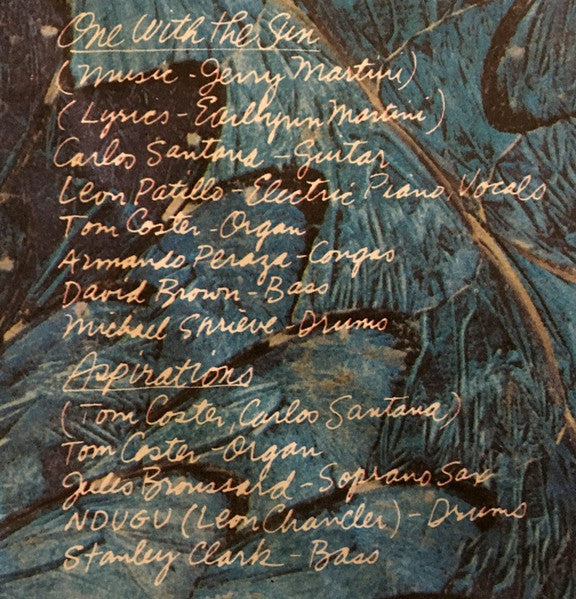 One With the Sun
(Music - Jerry Martini)
(Lyrics - Earlhynn Martini)
Carlos Santana - Guitar
Leon Patillo - Electric Piano, Vocals
Tom Coster - Organ
Armando Peraza - Congas
David Brown - Bass
Michael Shrieve - Drums
Aspirations
(Tom Coster, Carlos Santana)
Tom Coster - Organ
Jules Broussard - Soprano Sax
NDUGU (Leon Chancler) - Drums
Stanley Clark - Bass